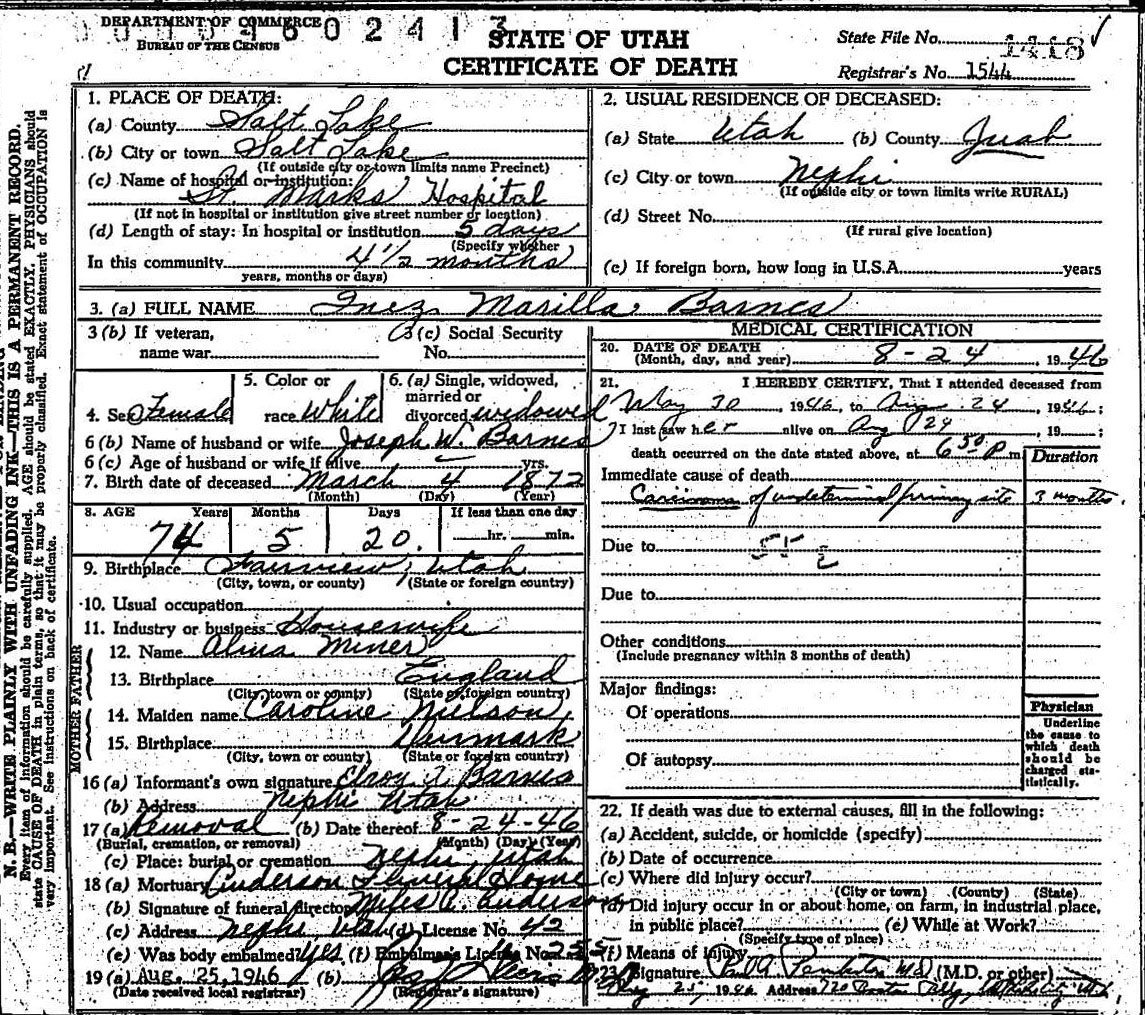 DEPARTMENT OF COMMERCE
BUREAU OF THE CENSUS
STATE OF UTAH
CERTIFICATE OF DEATH
State File No. 1418
Registrar's No. 1544
N. B.—WRITE PLAINLY WITH UNFADING INK—THIS IS A PERMANENT RECORD.
Every item of information should be carefully supplied. AGE should be stated EXACTLY. PHYSICIANS should
state CAUSE OF DEATH in plain terms, so that it may be properly classified. Exact statement of OCCUPATION is
very important. See instructions on back of certificate.
1. PLACE OF DEATH:
(a) County Salt Lake
(b) City or town Salt Lake
(If outside city or town limits name Precinct)
(c) Name of hospital or institution:
St. Marks Hospital
(If not in hospital or institution give street number or location)
(d) Length of stay: In hospital or institution 5 days
(Specify whether
In this community 4 1/2 months
years, months or days)
2. USUAL RESIDENCE OF DECEASED:
(a) State Utah (b) County Juab
(c) City or town Nephi
(If outside city or town limits write RURAL)
(d) Street No.
(If rural give location)
(e) If foreign born, how long in U.S.A. years
3. (a) FULL NAME Inez Marilla Barnes
3 (b) If veteran,
name war
3 (c) Social Security
No.
4. Sex Female
5. Color or
race White
6. (a) Single, widowed,
married or
divorced widowed
6 (b) Name of husband or wife Joseph W. Barnes
6 (c) Age of husband or wife if alive yrs.
7. Birth date of deceased March 4 1872
(Month) (Day) (Year)
8. AGE Years Months Days If less than one day
74 5 20 hr. min.
9. Birthplace Fairview, Utah
(City, town, or county) (State or foreign country)
10. Usual occupation
11. Industry or business Housewife
FATHER
12. Name Alma Miner
13. Birthplace England
(City, town or county) (State or foreign country)
MOTHER
14. Maiden name Caroline Nielson
15. Birthplace Denmark
(City, town or county) (State or foreign country)
16 (a) Informant's own signature Elroy A. Barnes
(b) Address Nephi Utah
17 (a) Removal (b) Date thereof 8-24-46
(Burial, cremation, or removal) (Month) (Day) (Year)
(c) Place: burial or cremation Nephi Utah
18 (a) Mortuary Anderson Funeral Home
(b) Signature of funeral director Miles A. Anderson
(c) Address Nephi Utah (d) License No. 42
(e) Was body embalmed? Yes (f) Embalmer's License No. 255
19 (a) Aug. 25, 1946 (b)
(Date received local registrar) (Registrar's signature)
MEDICAL CERTIFICATION
20. DATE OF DEATH
(Month, day, and year) 8-24, 1946
21. I HEREBY CERTIFY, That I attended deceased from
May 30, 1946, to Aug. 24, 1946;
I last saw her alive on Aug 24, 19 ;
death occurred on the date stated above, at 6 50 P m.
Duration
Immediate cause of death
Carcinoma of undetermined primary site 3 months.
Due to
Due to
Other conditions
(Include pregnancy within 3 months of death)
Major findings:
Of operations
Of autopsy
Physician
Underline
the cause to
which death
should be
charged sta-
tistically.
22. If death was due to external causes, fill in the following:
(a) Accident, suicide, or homicide (specify)
(b) Date of occurrence
(c) Where did injury occur?
(City or town) (County) (State)
(d) Did injury occur in or about home, on farm, in industrial place,
in public place? (e) While at Work?
(Specify type of place)
(f) Means of Injury
23. Signature M.D. (M.D. or other)
Aug 25, 1946 Address 720 Boston Bldg,